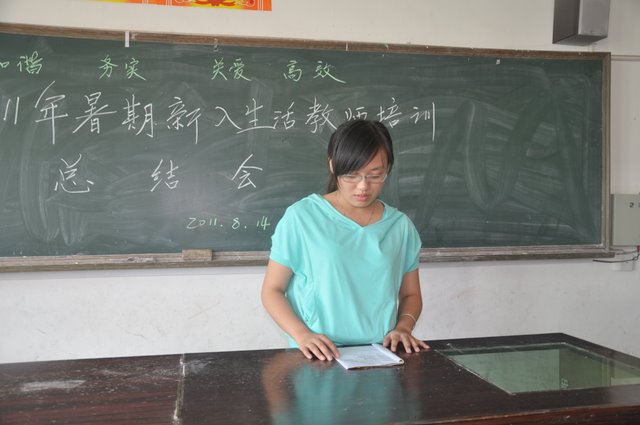 和谐 务实 关爱 高效
11年暑期新入生活教师培训
总结会
2011.8.14